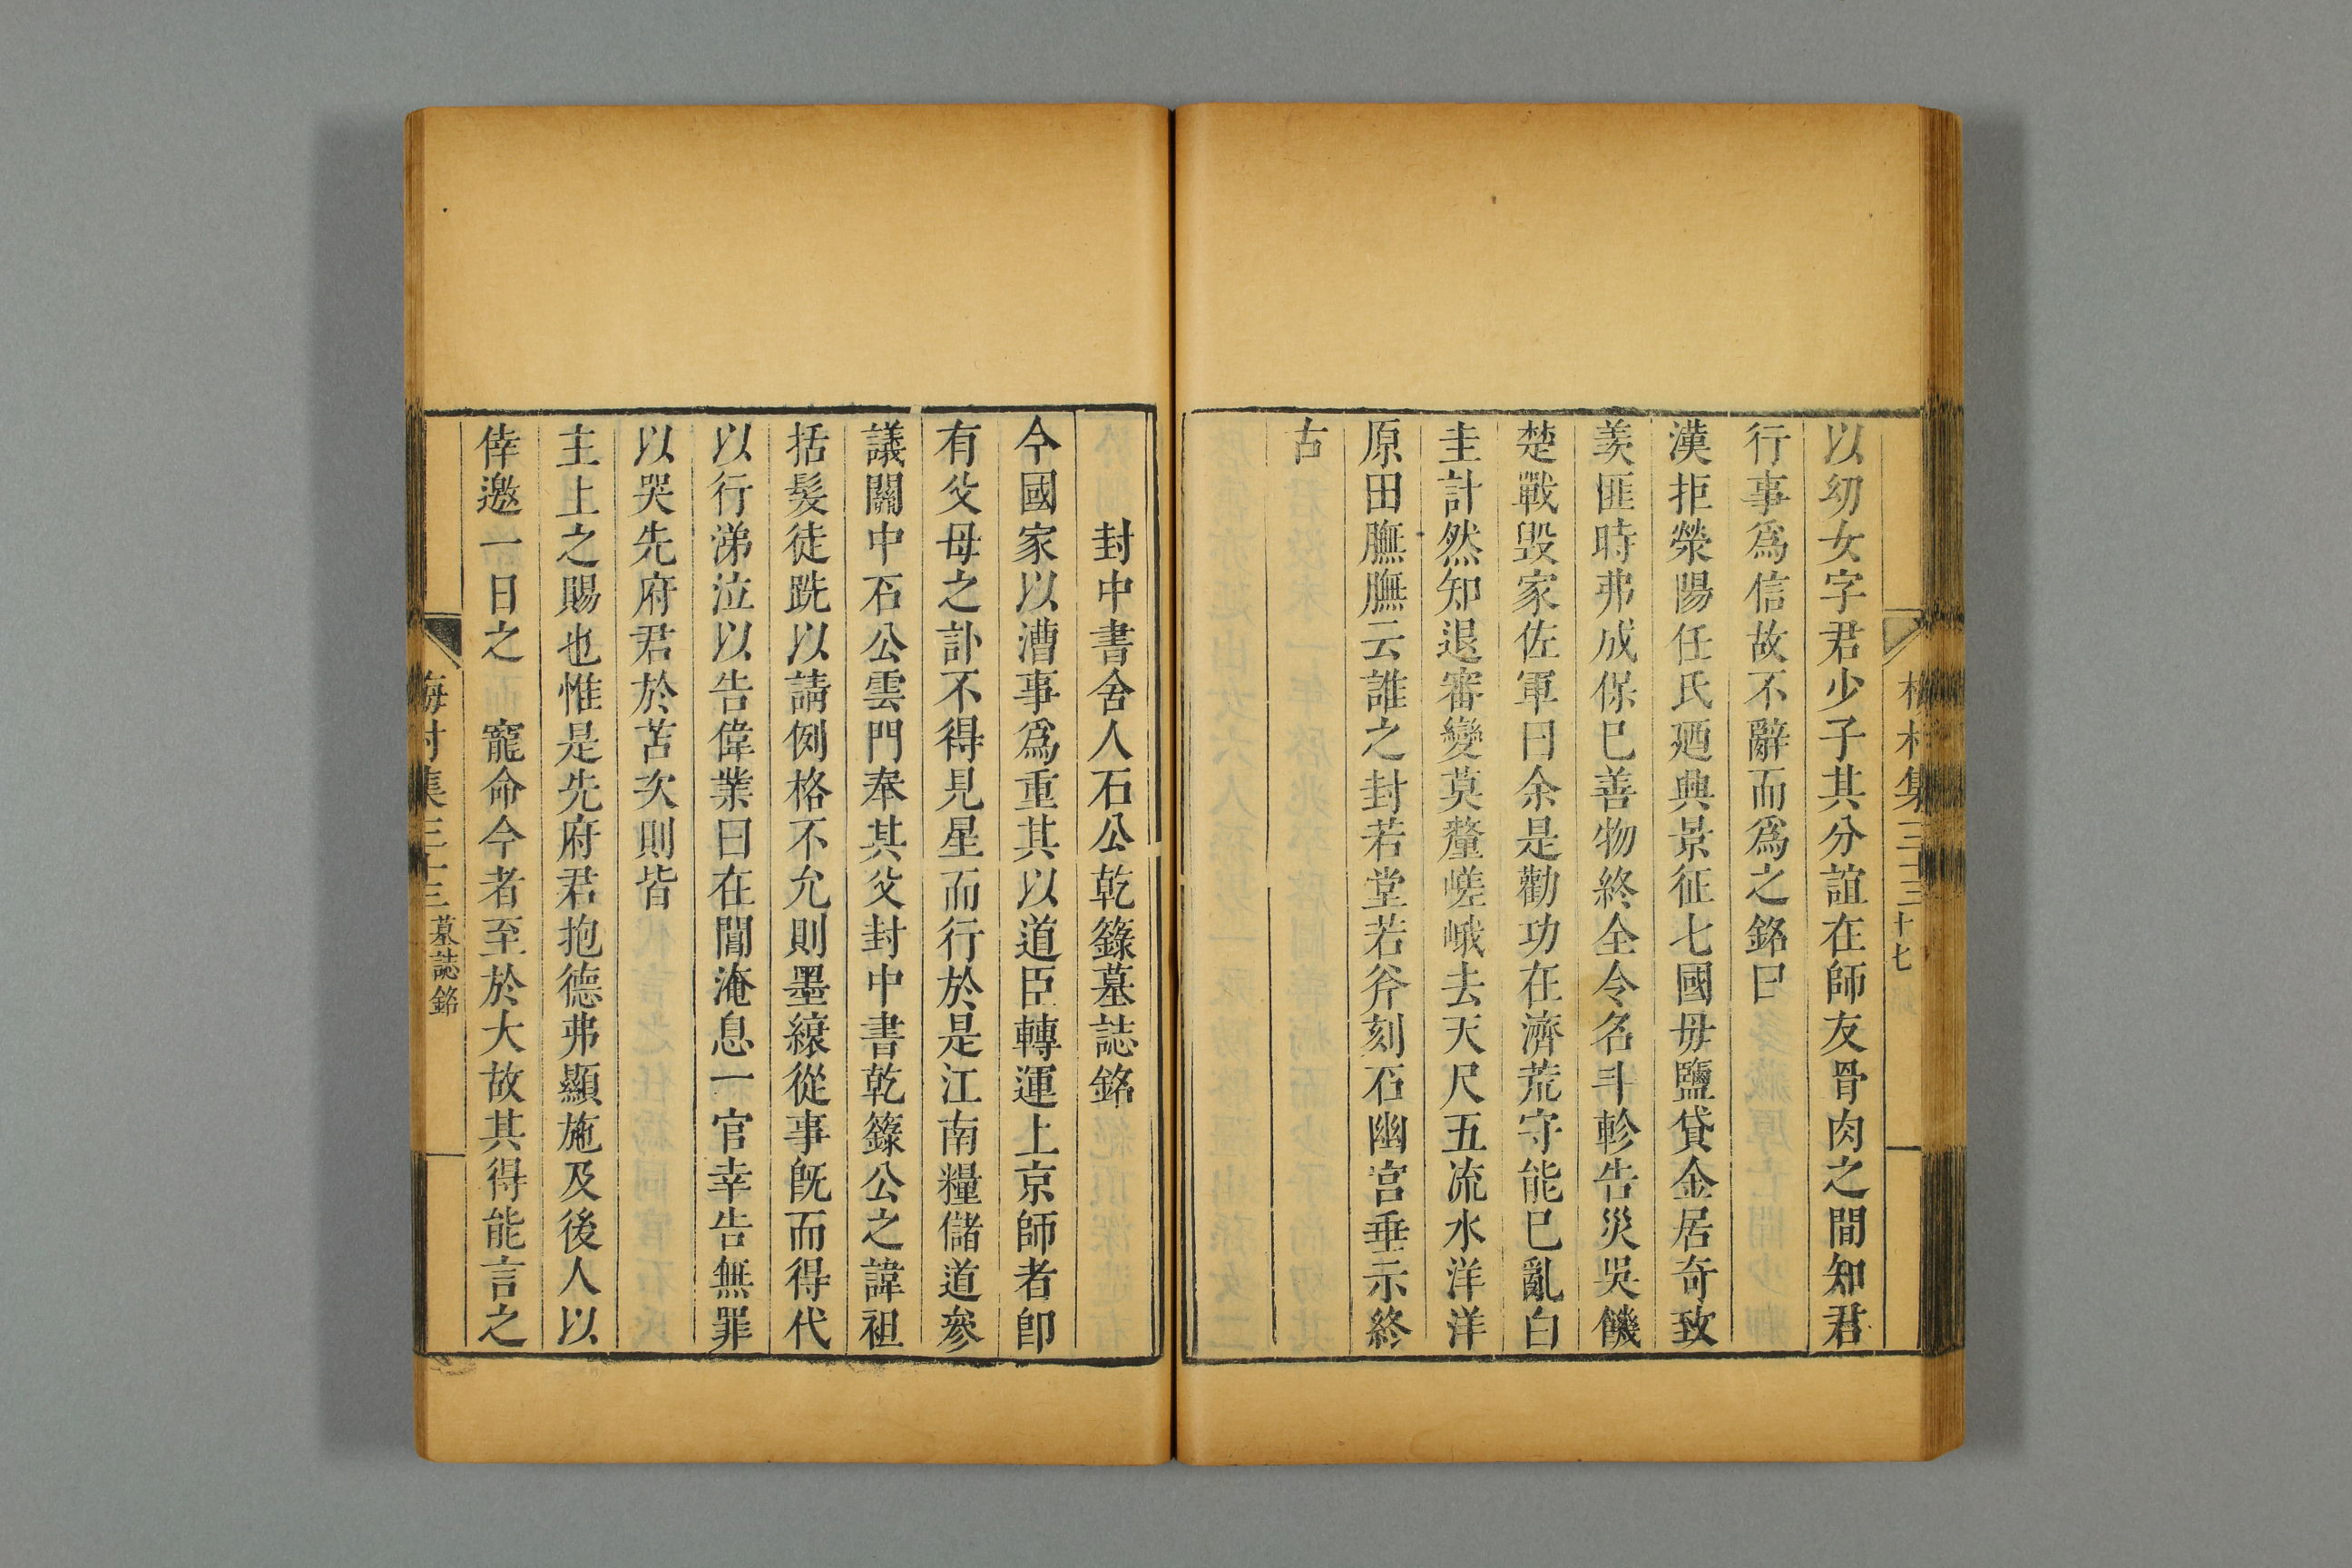 梅村集三十三 十七
以幼女字君少子其分誼在師友骨肉之間知君
行事爲信故不辭而爲之銘曰
漢拒滎陽任氏廼興景征七國毋鹽貸金居奇致
羨匪時弗成保巳善物終全令名斗軫告災吳饑
楚戰毀家佐軍曰余是勸功在濟荒守能巳亂白
圭計然知退審變莫釐嵯峨去天尺五流水洋洋
原田膴膴云誰之封若堂若斧刻石幽宮垂示終
古
封中書舍人石公乾籙墓誌銘
今國家以漕事爲重其以道臣轉運上京師者卽
有父母之訃不得見星而行於是江南糧儲道參
議關中石公雲門奉其父封中書乾籙公之諱袒
括髮徒跣以請例格不允則墨縗從事旣而得代
以行涕泣以告偉業曰在閶淹息一官幸告無罪
以哭先府君於苫次則皆
主上之賜也惟是先府君抱德弗顯施及後人以
倖邀一日之 寵命今者至於大故其得能言之
梅村集三十三 墓誌銘